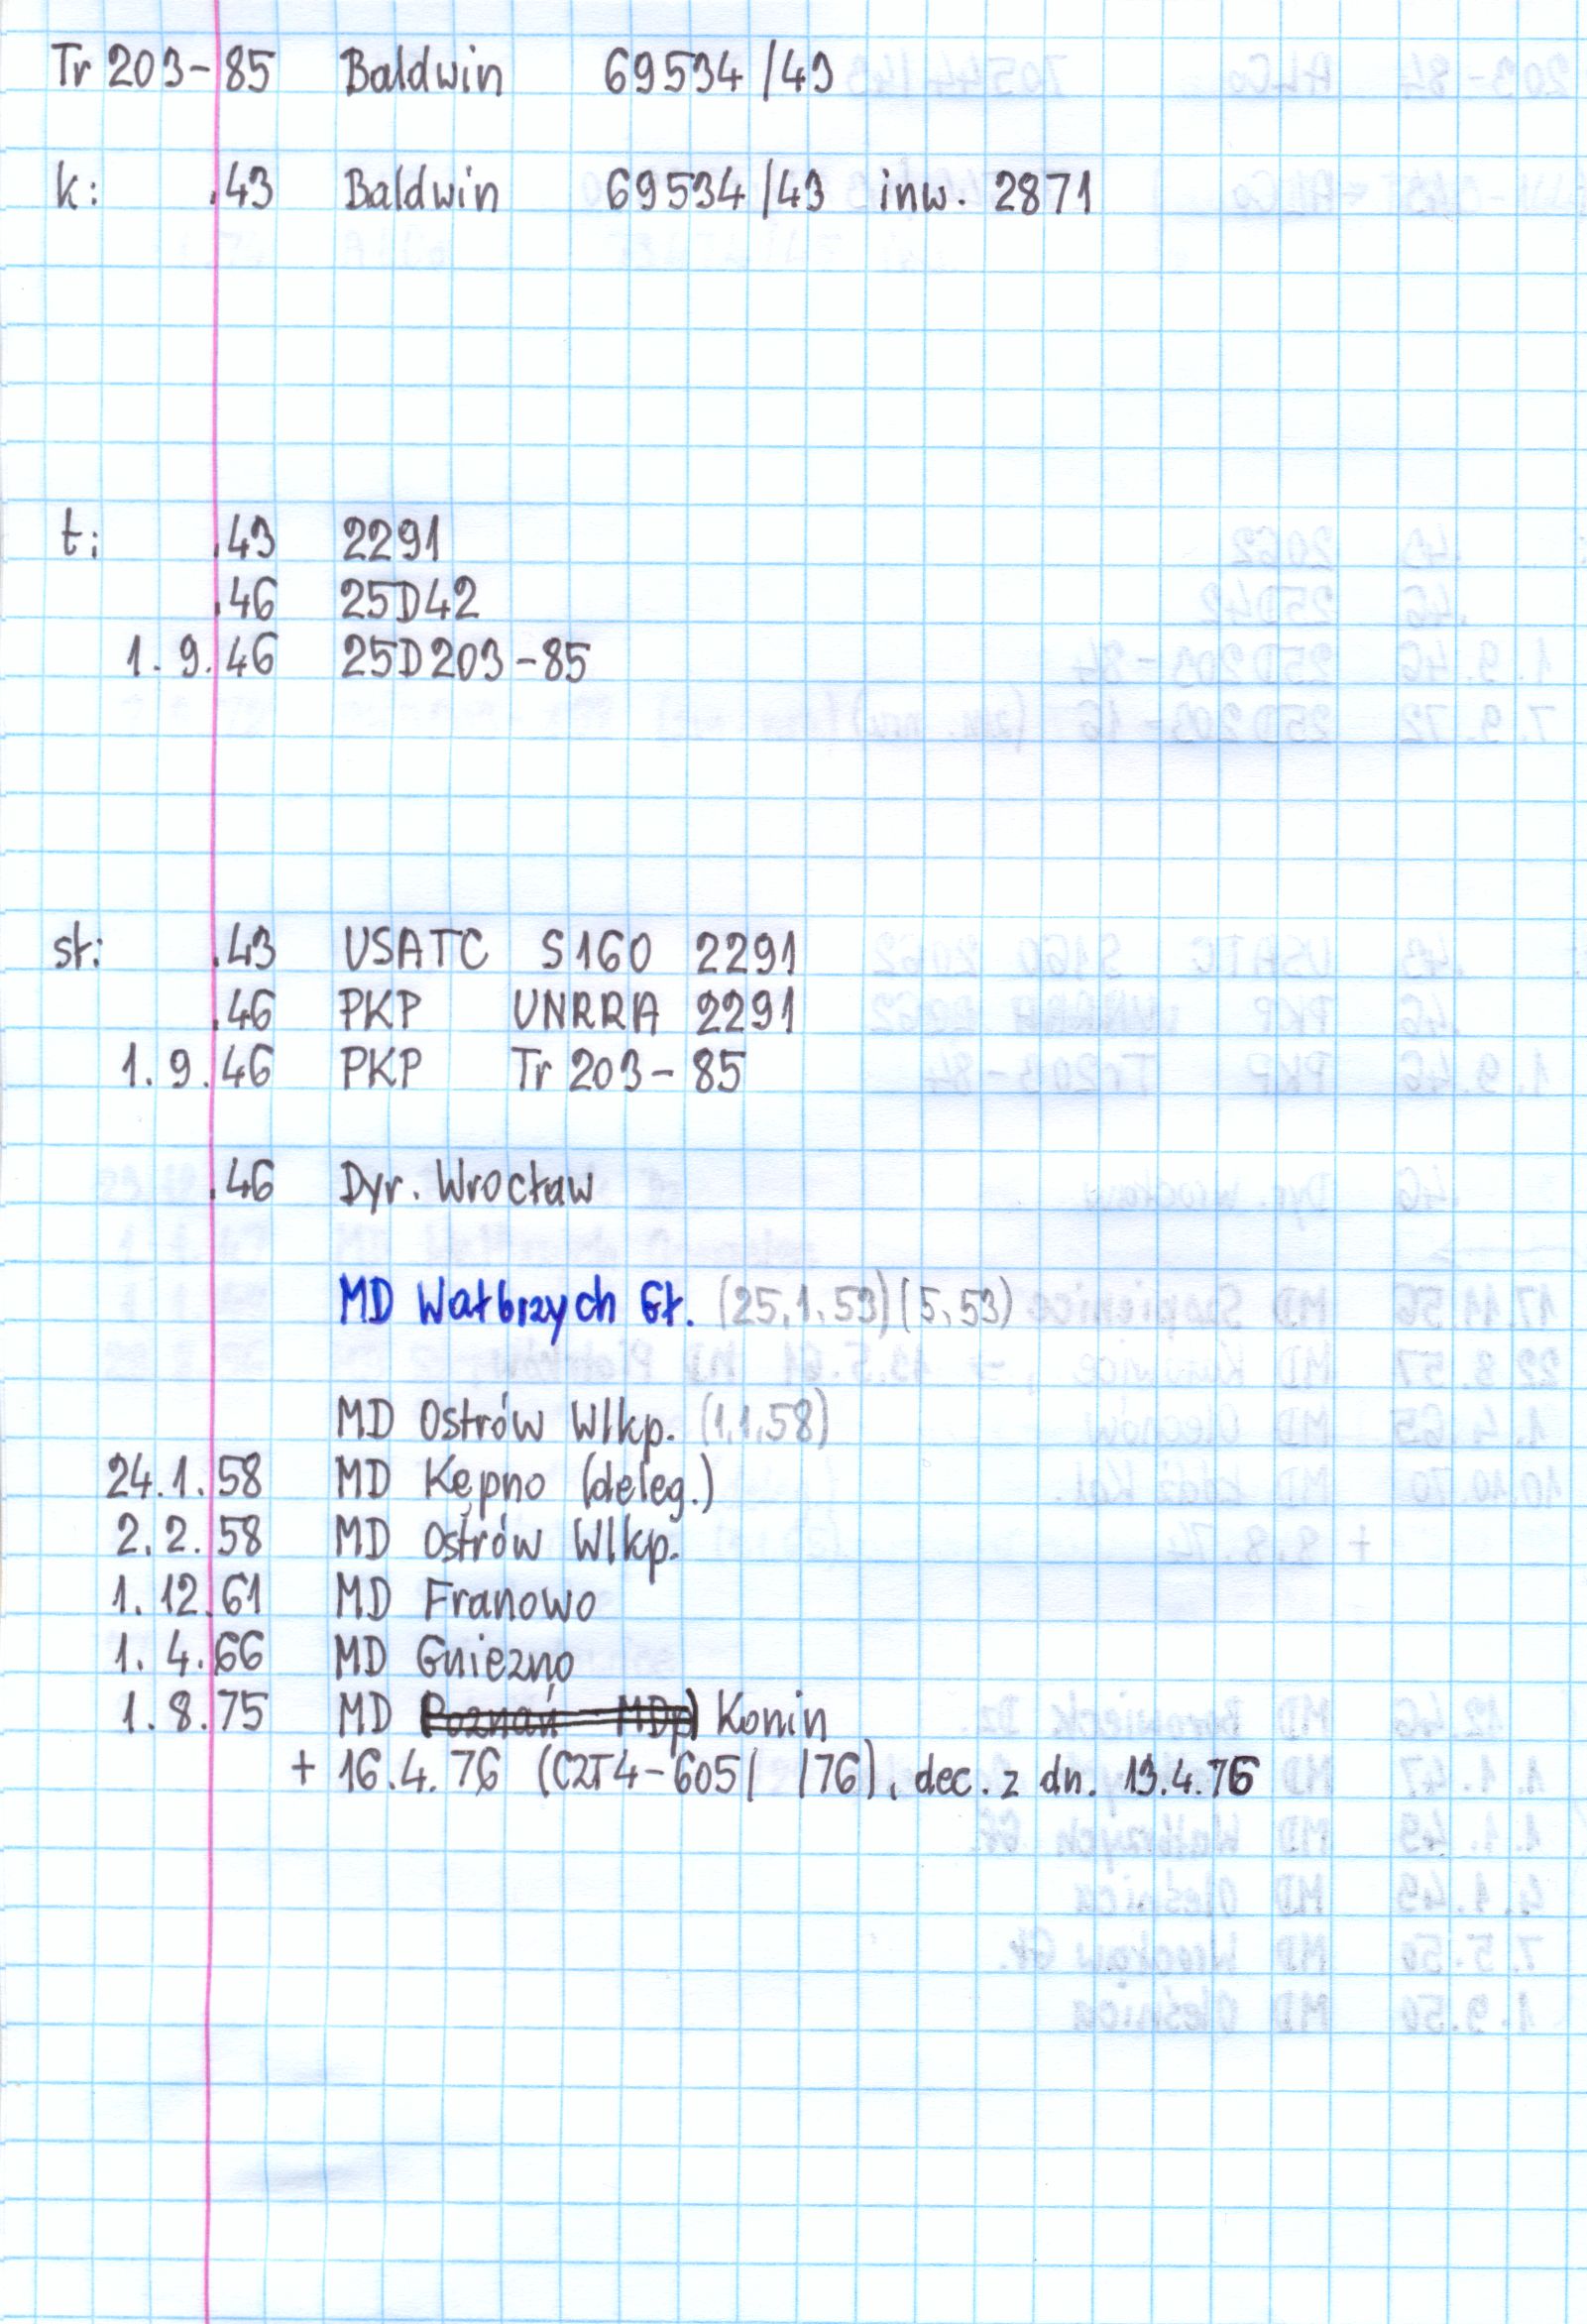 Tr 203-85 Baldwin 69534/43
k: .43 Baldwin 69534/43 inw. 2871
t: .43 2291
.46 25D42
1.9.46 25D203-85
st: .43 USATC S160 2291
.46 PKP UNRRA 2291
1.9.46 PKP Tr 203-85
.46 Dyr. Wrocław
MD Wałbrzych Gł. (25.1.53)(5.53)
MD Ostrów Wlkp. (1.1.58)
24.1.58 MD Kępno (deleg.)
2.2.58 MD Ostrów Wlkp.
1.12.61 MD Franowo
1.4.66 MD Gniezno
1.8.75 MD Poznań MDp) Konin
+ 16.4.76 (C2T4-605/ /76), dec. z dn. 13.4.76